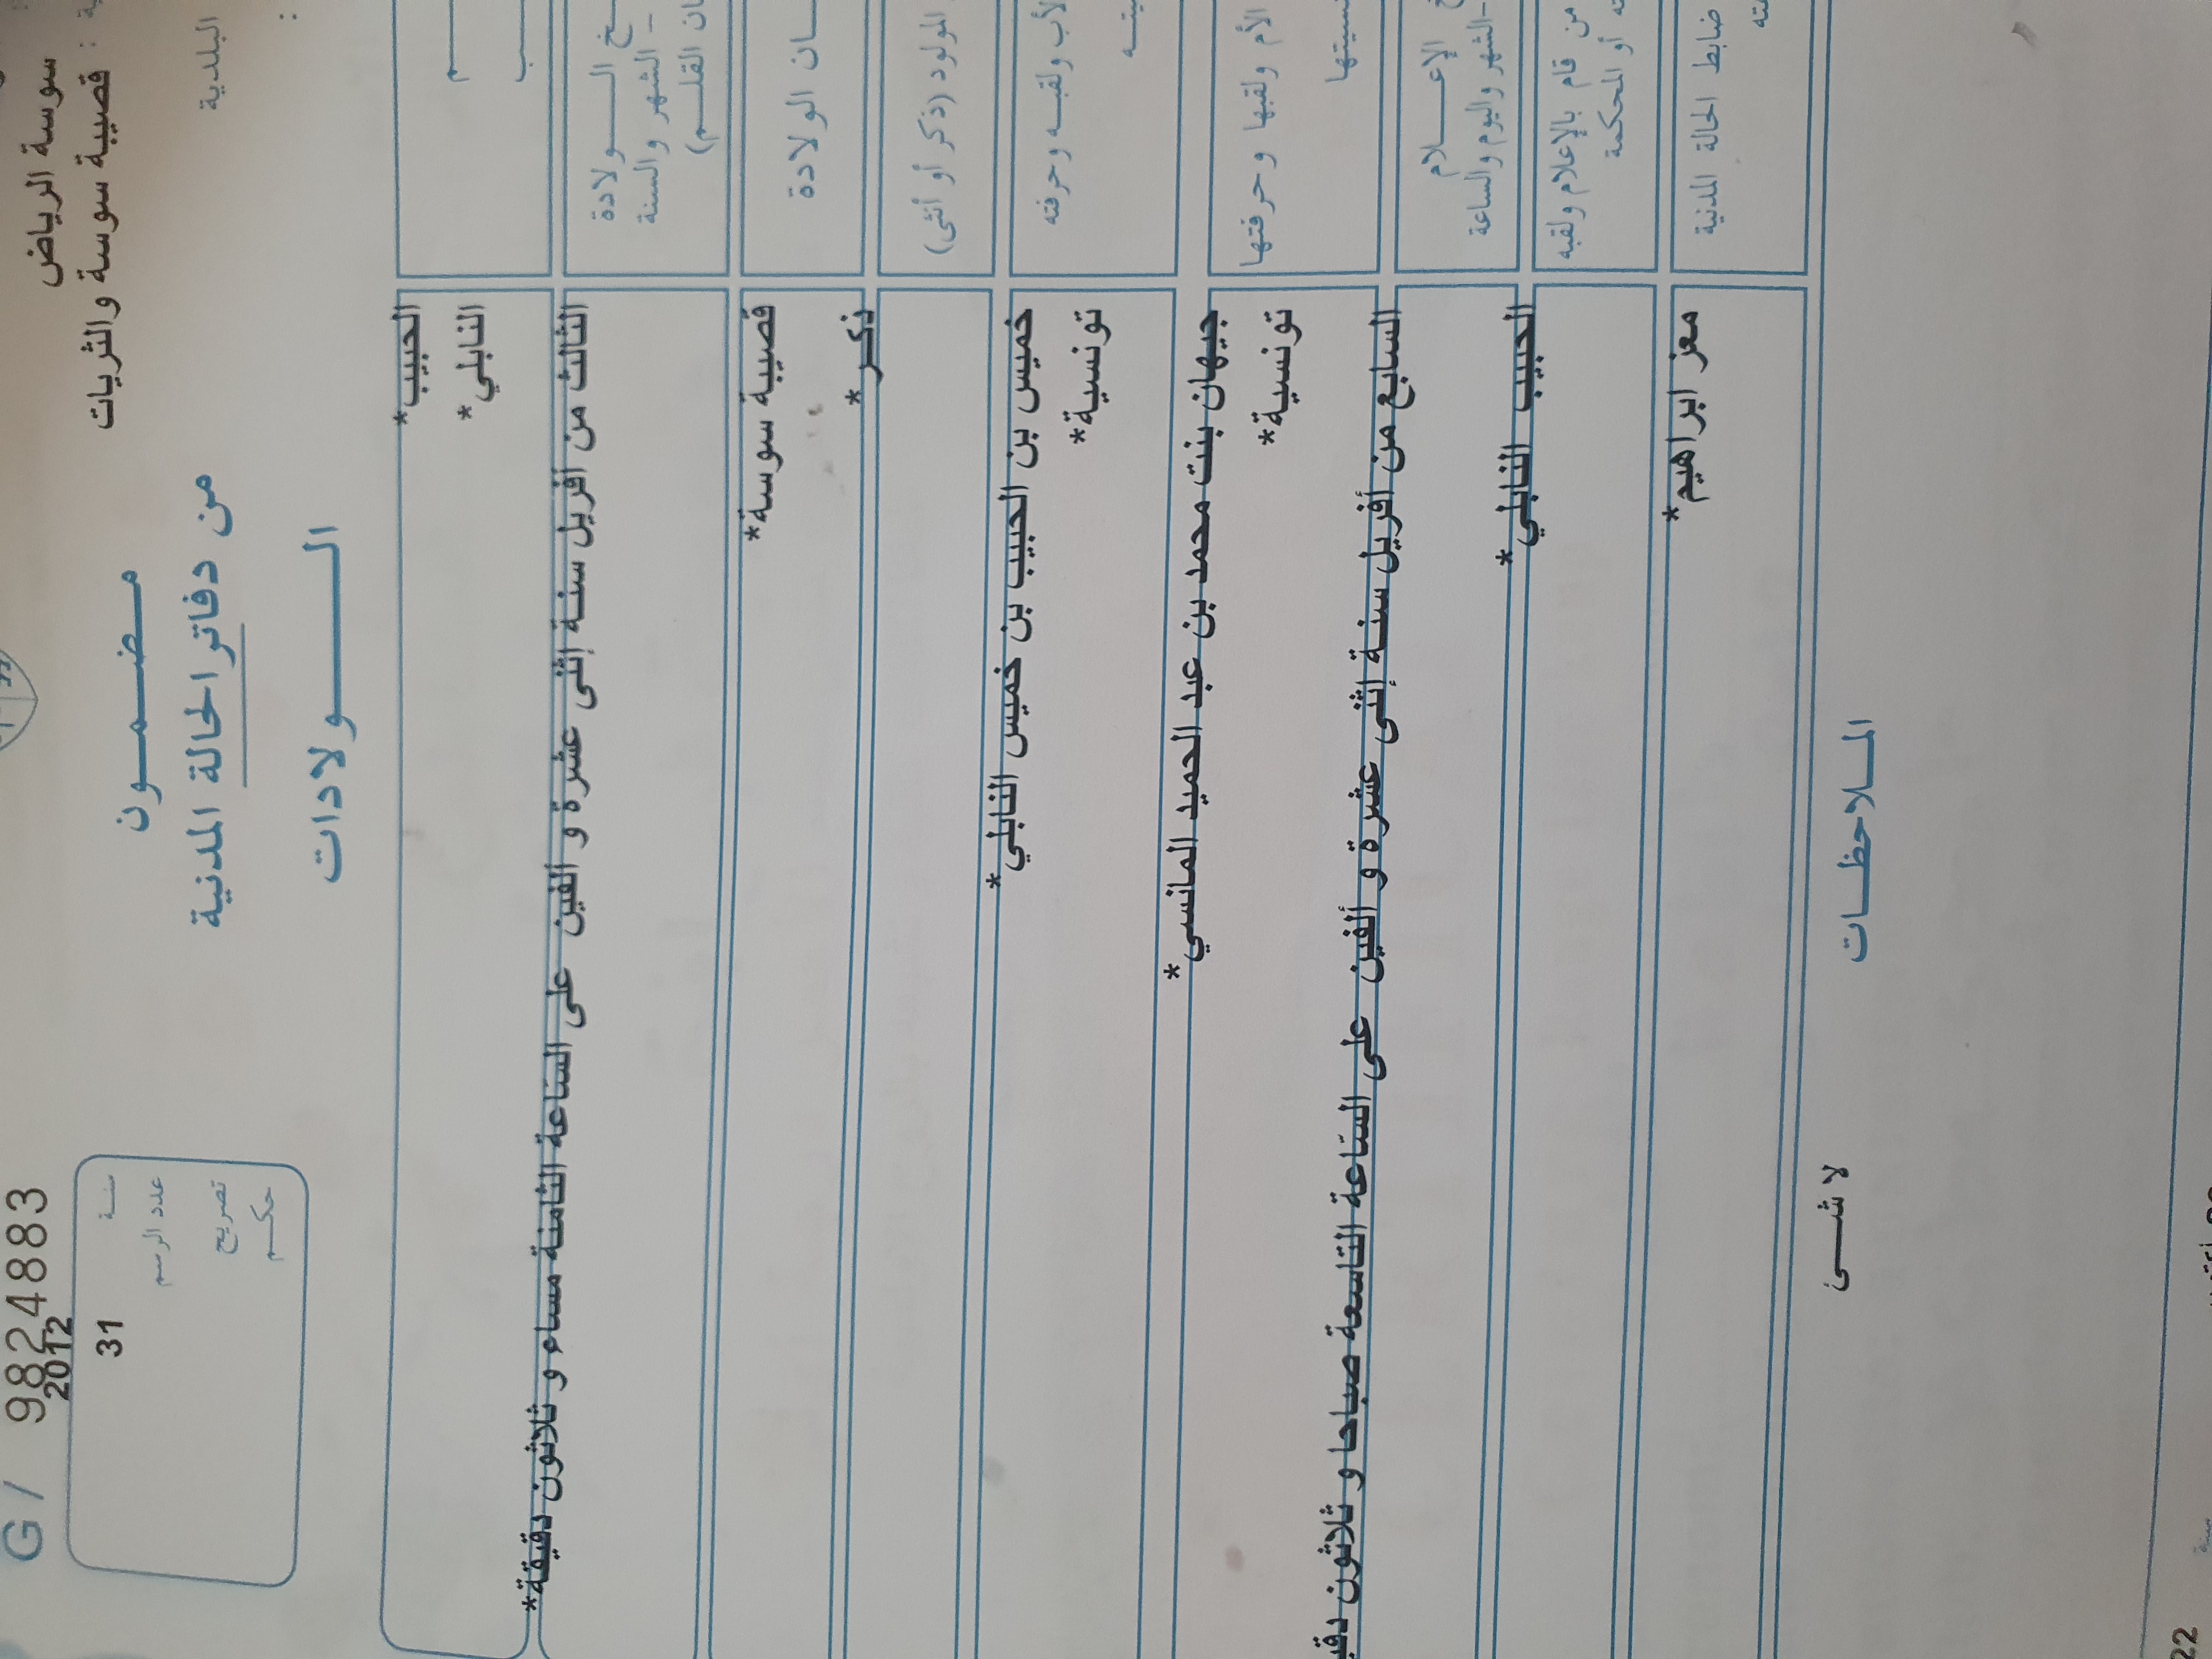 G / 9824883
2012
سنـة
31
عدد الرسم
تصريح
حكـم
سوسة الرياض
قصيبة سوسة والثريات
البلدية
مـضـمـون
من دفاتر الحالة المدنية
الـولادات
الحبيب*
النابلي*
الـولادة
- الشهر والسنة
القلـم)
الثالث من أفريل سنـة إثنى عشرة و ألفين على الساعة الثامنة مساء و ثلاثون دقيقة*
الولادة
قصيبة سوسة*
المولود (ذكر أو أنثى)
ذكـر *
ولقبـه وحرفته
خميس بن الحبيب بن خميس النابلي*
تونسية*
الأم ولقبها وحرفتها
جيهان بنت محمد بن عبد الحميد المانسي*
تونسية*
الإعـلام
-الشهر واليوم والساعة
السابع من أفريل سنـة إثنى عشرة و ألفين على الساعة التاسعة صباحا و ثلاثون
من قام بالإعلام ولقبه
أو المحكمة
الحبيب النابلي*
ضابط الحالة المدنية
معز ابراهيم*
المـلاحظـات
لا شـئ
سنة
22